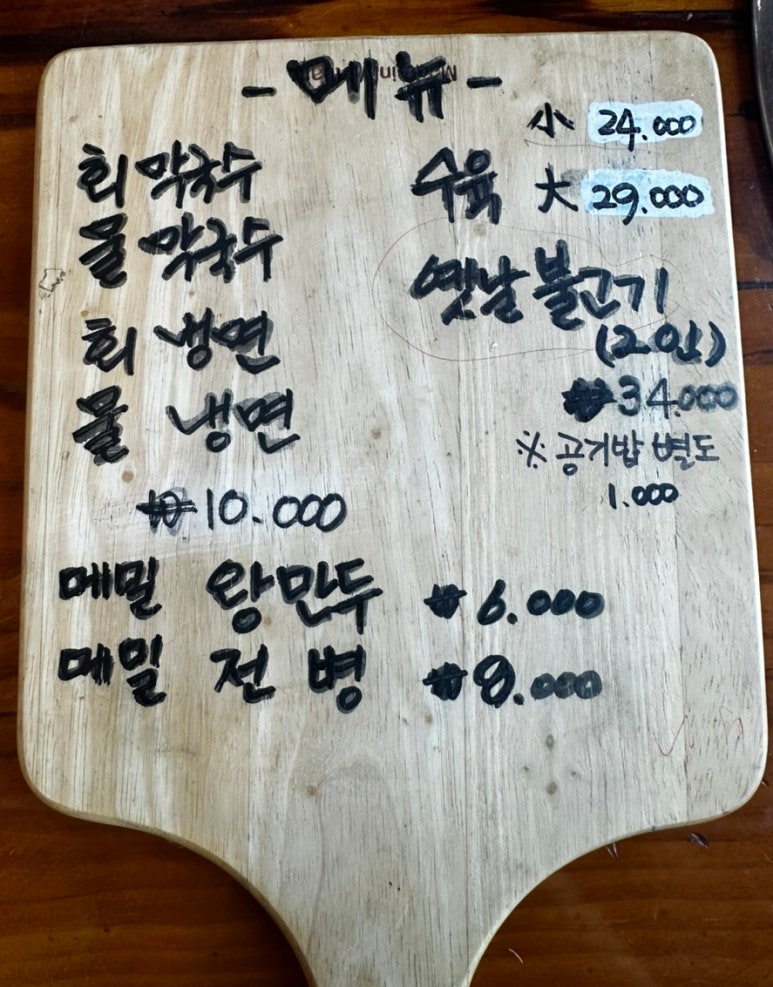 - 메뉴 -
회 막국수
물 막국수
회 냉면
물 냉면
₩10.000
小 24.000
수육 大 29.000
옛날 불고기
(2인)
₩34.000
※ 공기밥 별도
1.000
메밀 왕만두 ₩6.000
메밀 전병 ₩8.000